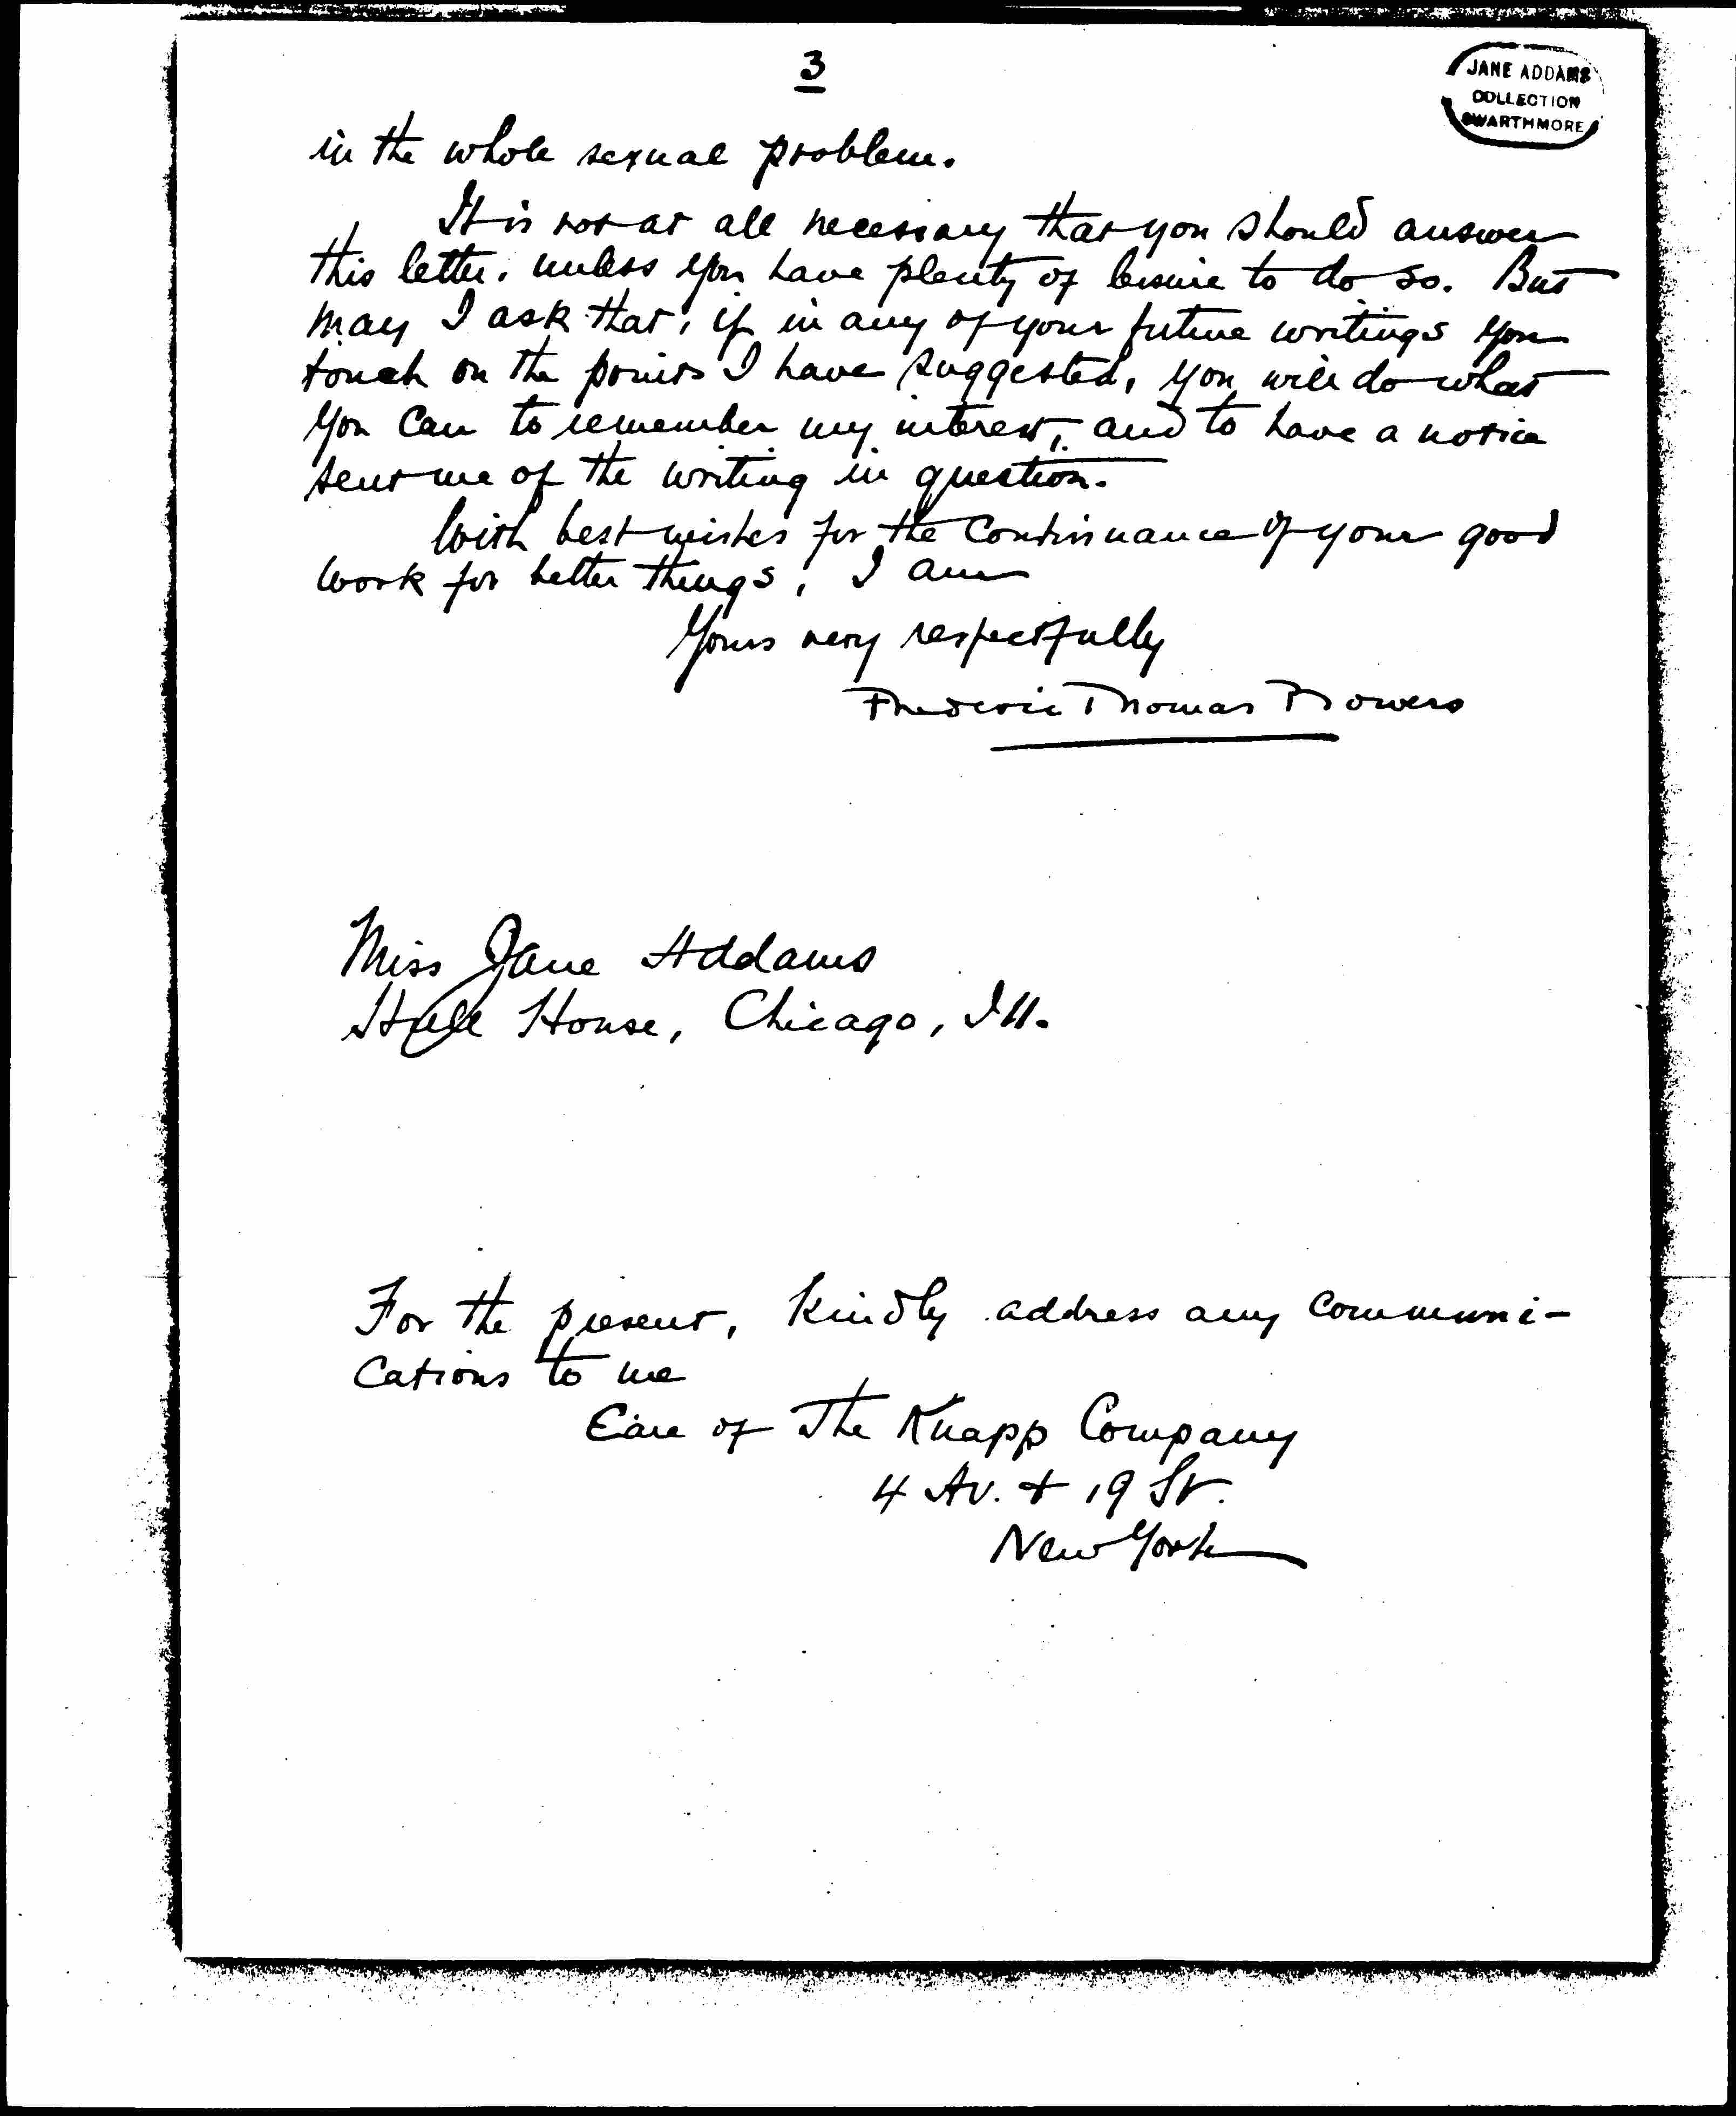 3
JANE ADDAMS
COLLECTION
SWARTHMORE
in the whole sexual problem.
It is not at all necessary that you should answer
this letter, unless you have plenty of leisure to do so. But
may I ask that, if in any of your future writings you
touch on the points I have suggested, you will do what
you can to remember my interest, and to have a notice
sent me of the writing in question.
With best wishes for the continuance of your good
work for better things, I am
Yours very respectfully
Frederic Thomas Bowers
Miss Jane Addams
Hull House, Chicago, Ill.
For the present, kindly address any communi-
cations to me
Care of The Knapp Company
4 Av. & 19 St.
New York